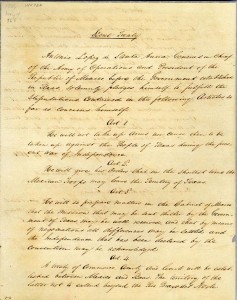 Secret Treaty
Antonio Lopez de Santa Anna General in Chief
of the Army of Operations and President of the
Republic of Mexico before the Government established
in Texas solemnly pledges himself to fulfill the
Stipulations Contained in the following Articles so
far as concerns himself
Art 1
He will not take up arms nor cause them to be
taken up against the People of Texas during the present
war of Independence
Art 2
He will give his Orders that in the shortest time the
Mexican Troops may leave the Territory of Texas
Art 3
He will so prepare matters in the Cabinet of Mexico
that the Mission that may be sent thither by the Government
of Texas may be well received, and that by means
of negotiations all differences may be settled and
the Independence that has been declared by the
Convention may be acknowledged
Art. 4
A treaty of Commerce Amity and limits will be established
between Mexico and Texas. The territory of the
latter not to extend beyond the Rio Bravo del Norte